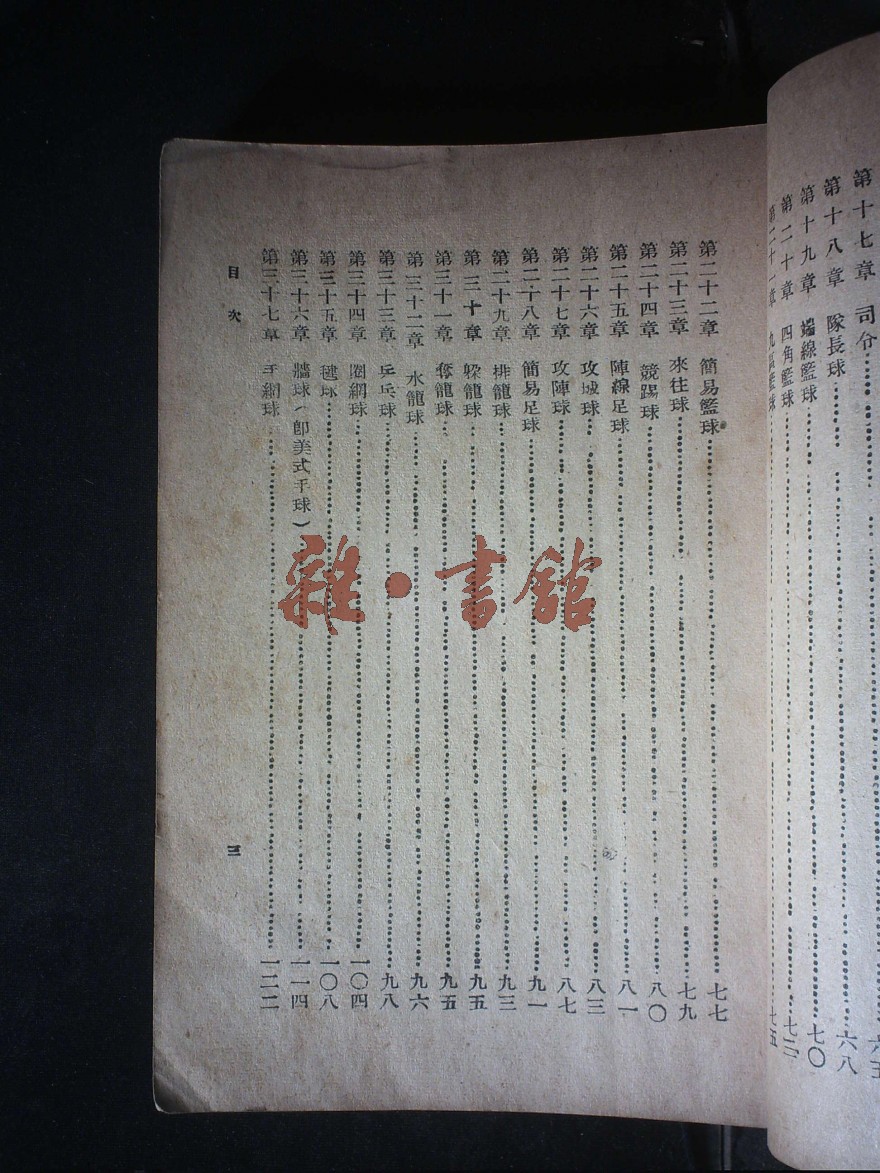 第十七章 司令
第十八章 隊長球 六八
第十九章 端線籃球 七〇
第二十章 四角籃球
第二十一章
第二十二章 簡易籃球 七七
第二十三章 來往球 七九
第二十四章 競踢球 八〇
第二十五章 陣線足球 八一
第二十六章 攻城球 八三
第二十七章 攻陣球 八七
第二十八章 簡易足球 九一
第二十九章 排籠球 九三
第三十章 躲籠球 九五
第三十一章 奪籠球 九五
第三十二章 水籠球 九六
第三十三章 乒乓球 九八
第三十四章 圈網球 一〇四
第三十五章 毽球 一〇八
第三十六章 牆球(卽美式手球) 一一四
第三十七章 手網球 一二二
目次
三
雜·書館